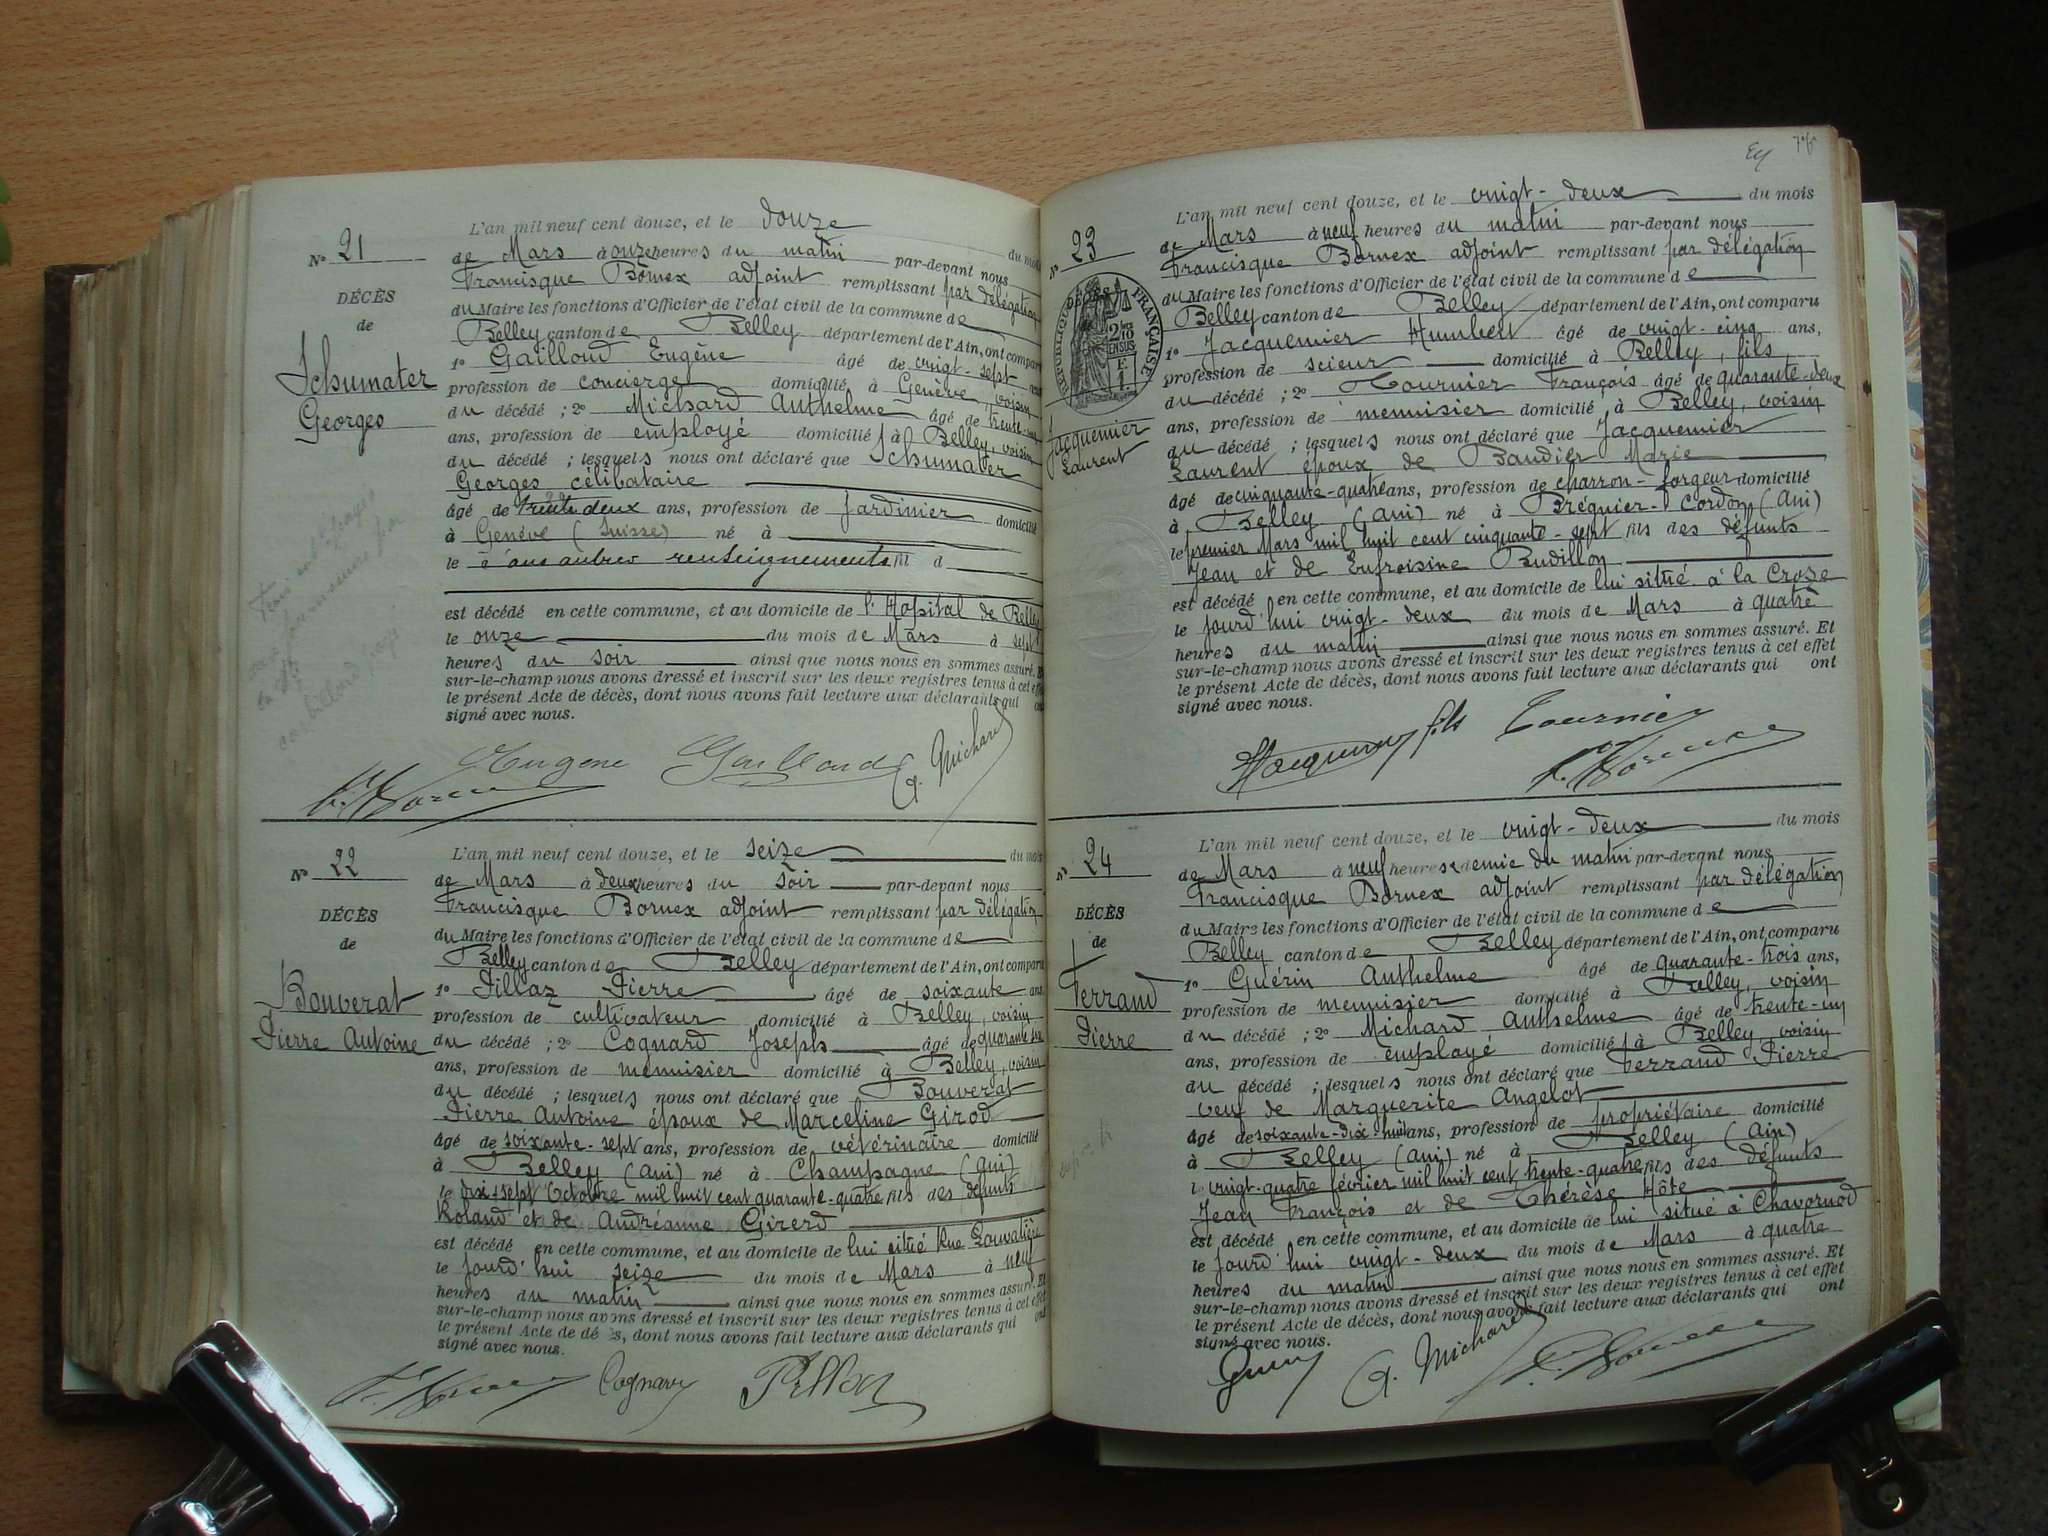 L'an mil neuf cent douze, et le douze du mois
N° 21
de Mars à onze heures du matin par-devant nous
Francisque Bornex adjoint remplissant par délégation
DÉCÈS
du Maire les fonctions d'Officier de l'état civil de la commune de
de
Belley canton de Belley département de l'Ain, ont comparu
Schumater
Georges
1° Gailloud Eugène âgé de vingt-sept ans
profession de concierge domicilié à Genève, voisin
du décédé ; 2° Michard Anthelme âgé de trente-un
ans, profession de employé domicilié à Belley, voisin
du décédé ; lesquels nous ont déclaré que Schumater
Georges célibataire
âgé de trente deux ans, profession de Jardinier domicilié
à Genève (Suisse) né à
le sans autres renseignements fil d
est décédé en cette commune, et au domicile de l'Hopital de Belley
le onze du mois de Mars à sept
heures du soir ainsi que nous nous en sommes assuré. Et
sur-le-champ nous avons dressé et inscrit sur les deux registres tenus à cet effet
le présent Acte de décès, dont nous avons fait lecture aux déclarants qui ont
signé avec nous.
Eugène Gailloud A. Michard
F. Bornex
L'an mil neuf cent douze, et le seize du mois
N° 22
de Mars à deux heures du soir par-devant nous
Francisque Bornex adjoint remplissant par délégation
DÉCÈS
du Maire les fonctions d'Officier de l'état civil de la commune de
de
Belley canton de Belley département de l'Ain, ont comparu
Bouverat
Pierre Antoine
1° Pillaz Pierre âgé de soixante ans
profession de cultivateur domicilié à Belley, voisin
du décédé ; 2° Cognard Joseph âgé de quarante six
ans, profession de menuisier domicilié à Belley, voisin
du décédé ; lesquels nous ont déclaré que Bouverat
Pierre Antoine époux de Marceline Girod
âgé de soixante-sept ans, profession de vétérinaire domicilié
à Belley (Ain) né à Champagne (Ain)
le dix-sept Octobre mil huit cent quarante-quatre fils des défunts
Roland et de Andréanne Girerd
est décédé en cette commune, et au domicile de lui situé Rue
le jourd'hui seize du mois de Mars à neuf
heures du matin ainsi que nous nous en sommes assuré. Et
sur-le-champ nous avons dressé et inscrit sur les deux registres tenus à cet effet
le présent Acte de décès, dont nous avons fait lecture aux déclarants qui ont
signé avec nous.
F. Bornex Cognard Pillaz
L'an mil neuf cent douze, et le vingt-deux du mois
N° 23
de Mars à neuf heures du matin par-devant nous
Francisque Bornex adjoint remplissant par délégation
DÉCÈS
RÉPUBLIQUE FRANÇAISE
du Maire les fonctions d'Officier de l'état civil de la commune de
Belley canton de Belley département de l'Ain, ont comparu
Jacquemier
Laurent
1° Jacquemier Humbert âgé de vingt-cinq ans,
profession de scieur domicilié à Belley, fils
du décédé ; 2° Tournier François âgé de quarante-deux
ans, profession de menuisier domicilié à Belley, voisin
du décédé ; lesquels nous ont déclaré que Jacquemier
Laurent époux de Baudier Marie
âgé de cinquante-quatre ans, profession de charron-forgeur domicilié
à Belley (Ain) né à Brégnier-Cordon (Ain)
le premier Mars mil huit cent cinquante-sept fils des défunts
Jean et de Eufroisine Budillon
est décédé en cette commune, et au domicile de lui situé à la Croze
le jourd'hui vingt-deux du mois de Mars à quatre
heures du matin ainsi que nous nous en sommes assuré. Et
sur-le-champ nous avons dressé et inscrit sur les deux registres tenus à cet effet
le présent Acte de décès, dont nous avons fait lecture aux déclarants qui ont
signé avec nous.
fils Tournier
F. Bornex
L'an mil neuf cent douze, et le vingt-deux du mois
N° 24
de Mars à neuf heures & demie du matin par-devant nous
Francisque Bornex adjoint remplissant par délégation
DÉCÈS
du Maire les fonctions d'Officier de l'état civil de la commune de
de
Belley canton de Belley département de l'Ain, ont comparu
Ferrand
Pierre
1° Guérin Anthelme âgé de quarante-trois ans,
profession de menuisier domicilié à Belley, voisin
du décédé ; 2° Michard Anthelme âgé de trente-un
ans, profession de employé domicilié à Belley, voisin
du décédé ; lesquels nous ont déclaré que Ferrand Pierre
veuf de Marguerite Angelot
âgé de soixante-dix-huit ans, profession de propriétaire domicilié
à Belley (Ain) né à Belley (Ain)
l vingt-quatre février mil huit cent trente-quatre fils des défunts
Jean François et de Thérèse Hôte
est décédé en cette commune, et au domicile de lui situé à Chavornod
le jourd'hui vingt-deux du mois de Mars à quatre
heures du matin ainsi que nous nous en sommes assuré. Et
sur-le-champ nous avons dressé et inscrit sur les deux registres tenus à cet effet
le présent Acte de décès, dont nous avons fait lecture aux déclarants qui ont
signé avec nous.
A. Michard F. Bornex